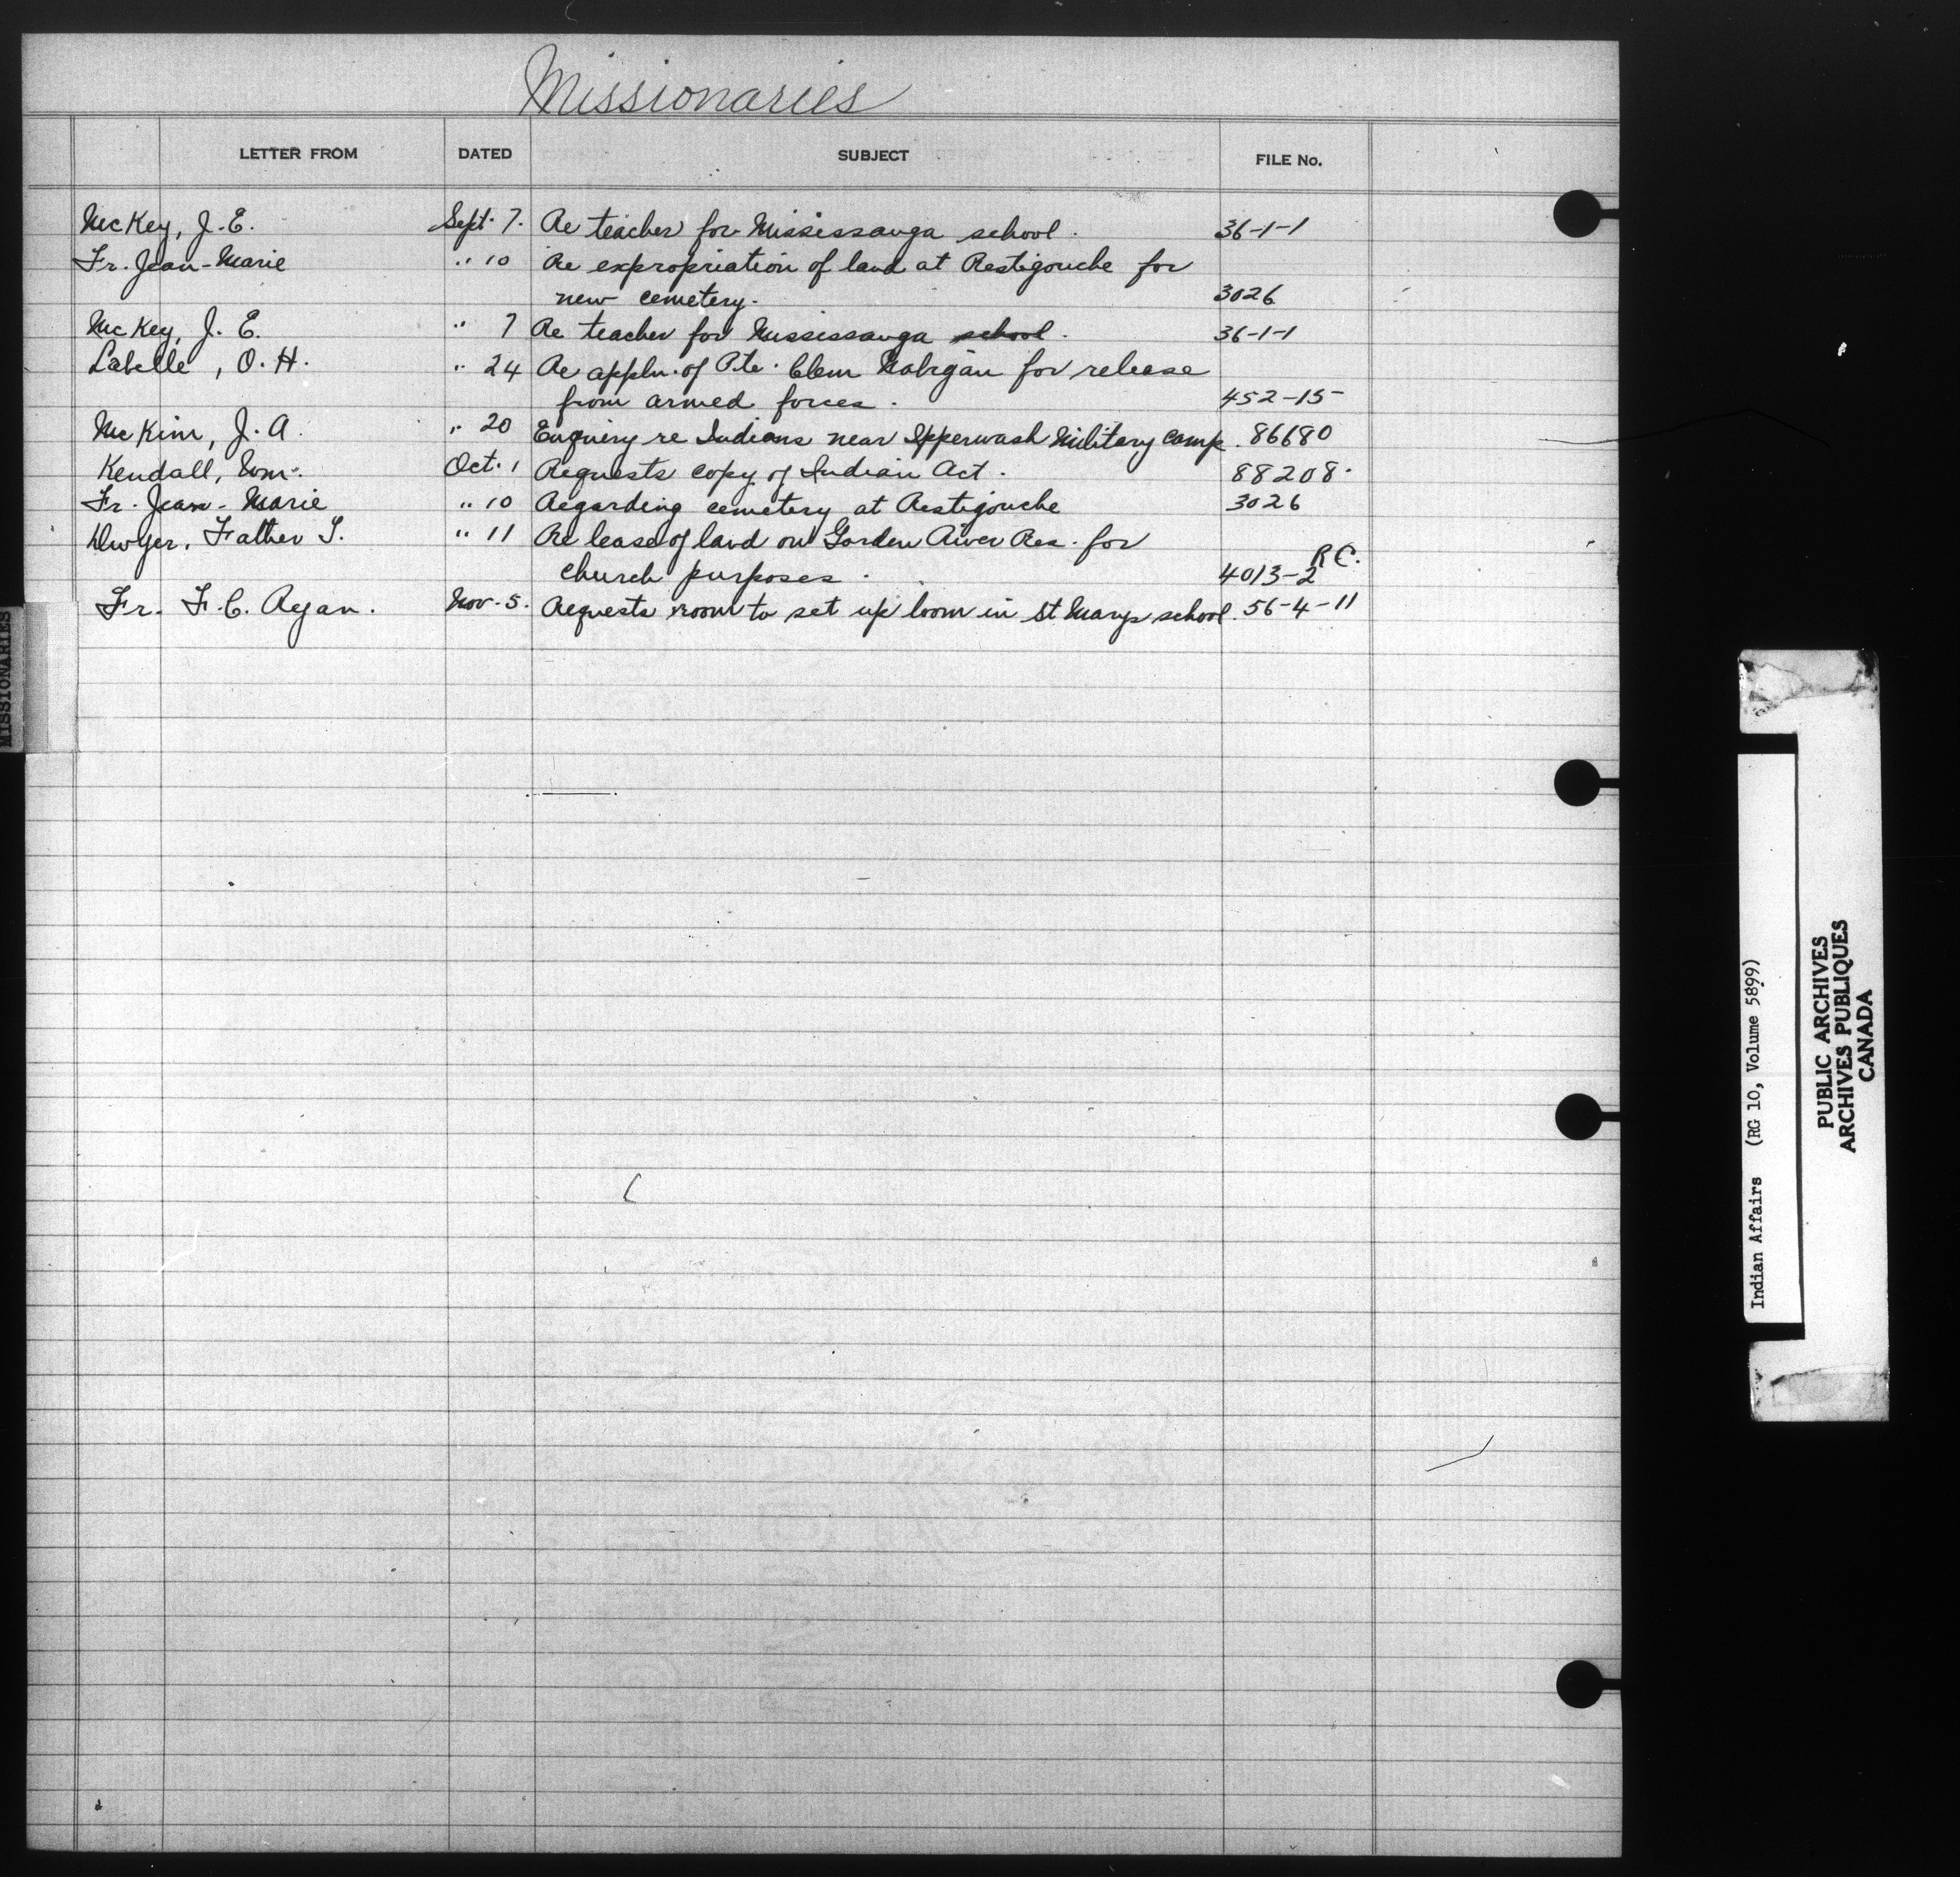 Missionaries
LETTER FROM DATED SUBJECT FILE No.
McKey, J. E. Sept. 7. Re teacher for Mississauga school. 36-1-1
Fr. Jean-Marie " 10 Re expropriation of land at Restigouche for
new cemetery. 3026
McKey, J. E. " 7 Re teacher for Mississauga school. 36-1-1
Labelle, O. H. " 24 Re appln. of Pte. Clem for release
from armed forces. 452-15
McKim, J. A. " 20 Enquiry re Indians near Ipperwash Military Camp. 86680
Kendall, Wm. Oct. 1 Requests copy of Indian Act. 88208
Fr. Jean-Marie " 10 Regarding cemetery at Restigouche 3026
Dwyer, Father " 11 Re lease of land on Garden River Res. for
church purposes. 4013-2 R.C.
Fr. F. C. Ryan. Nov. 5. Requests room to set up loom in St Marys school. 56-4-11
MISSIONARIES
Indian Affairs (RG 10, Volume 5899)
PUBLIC ARCHIVES
ARCHIVES PUBLIQUES
CANADA